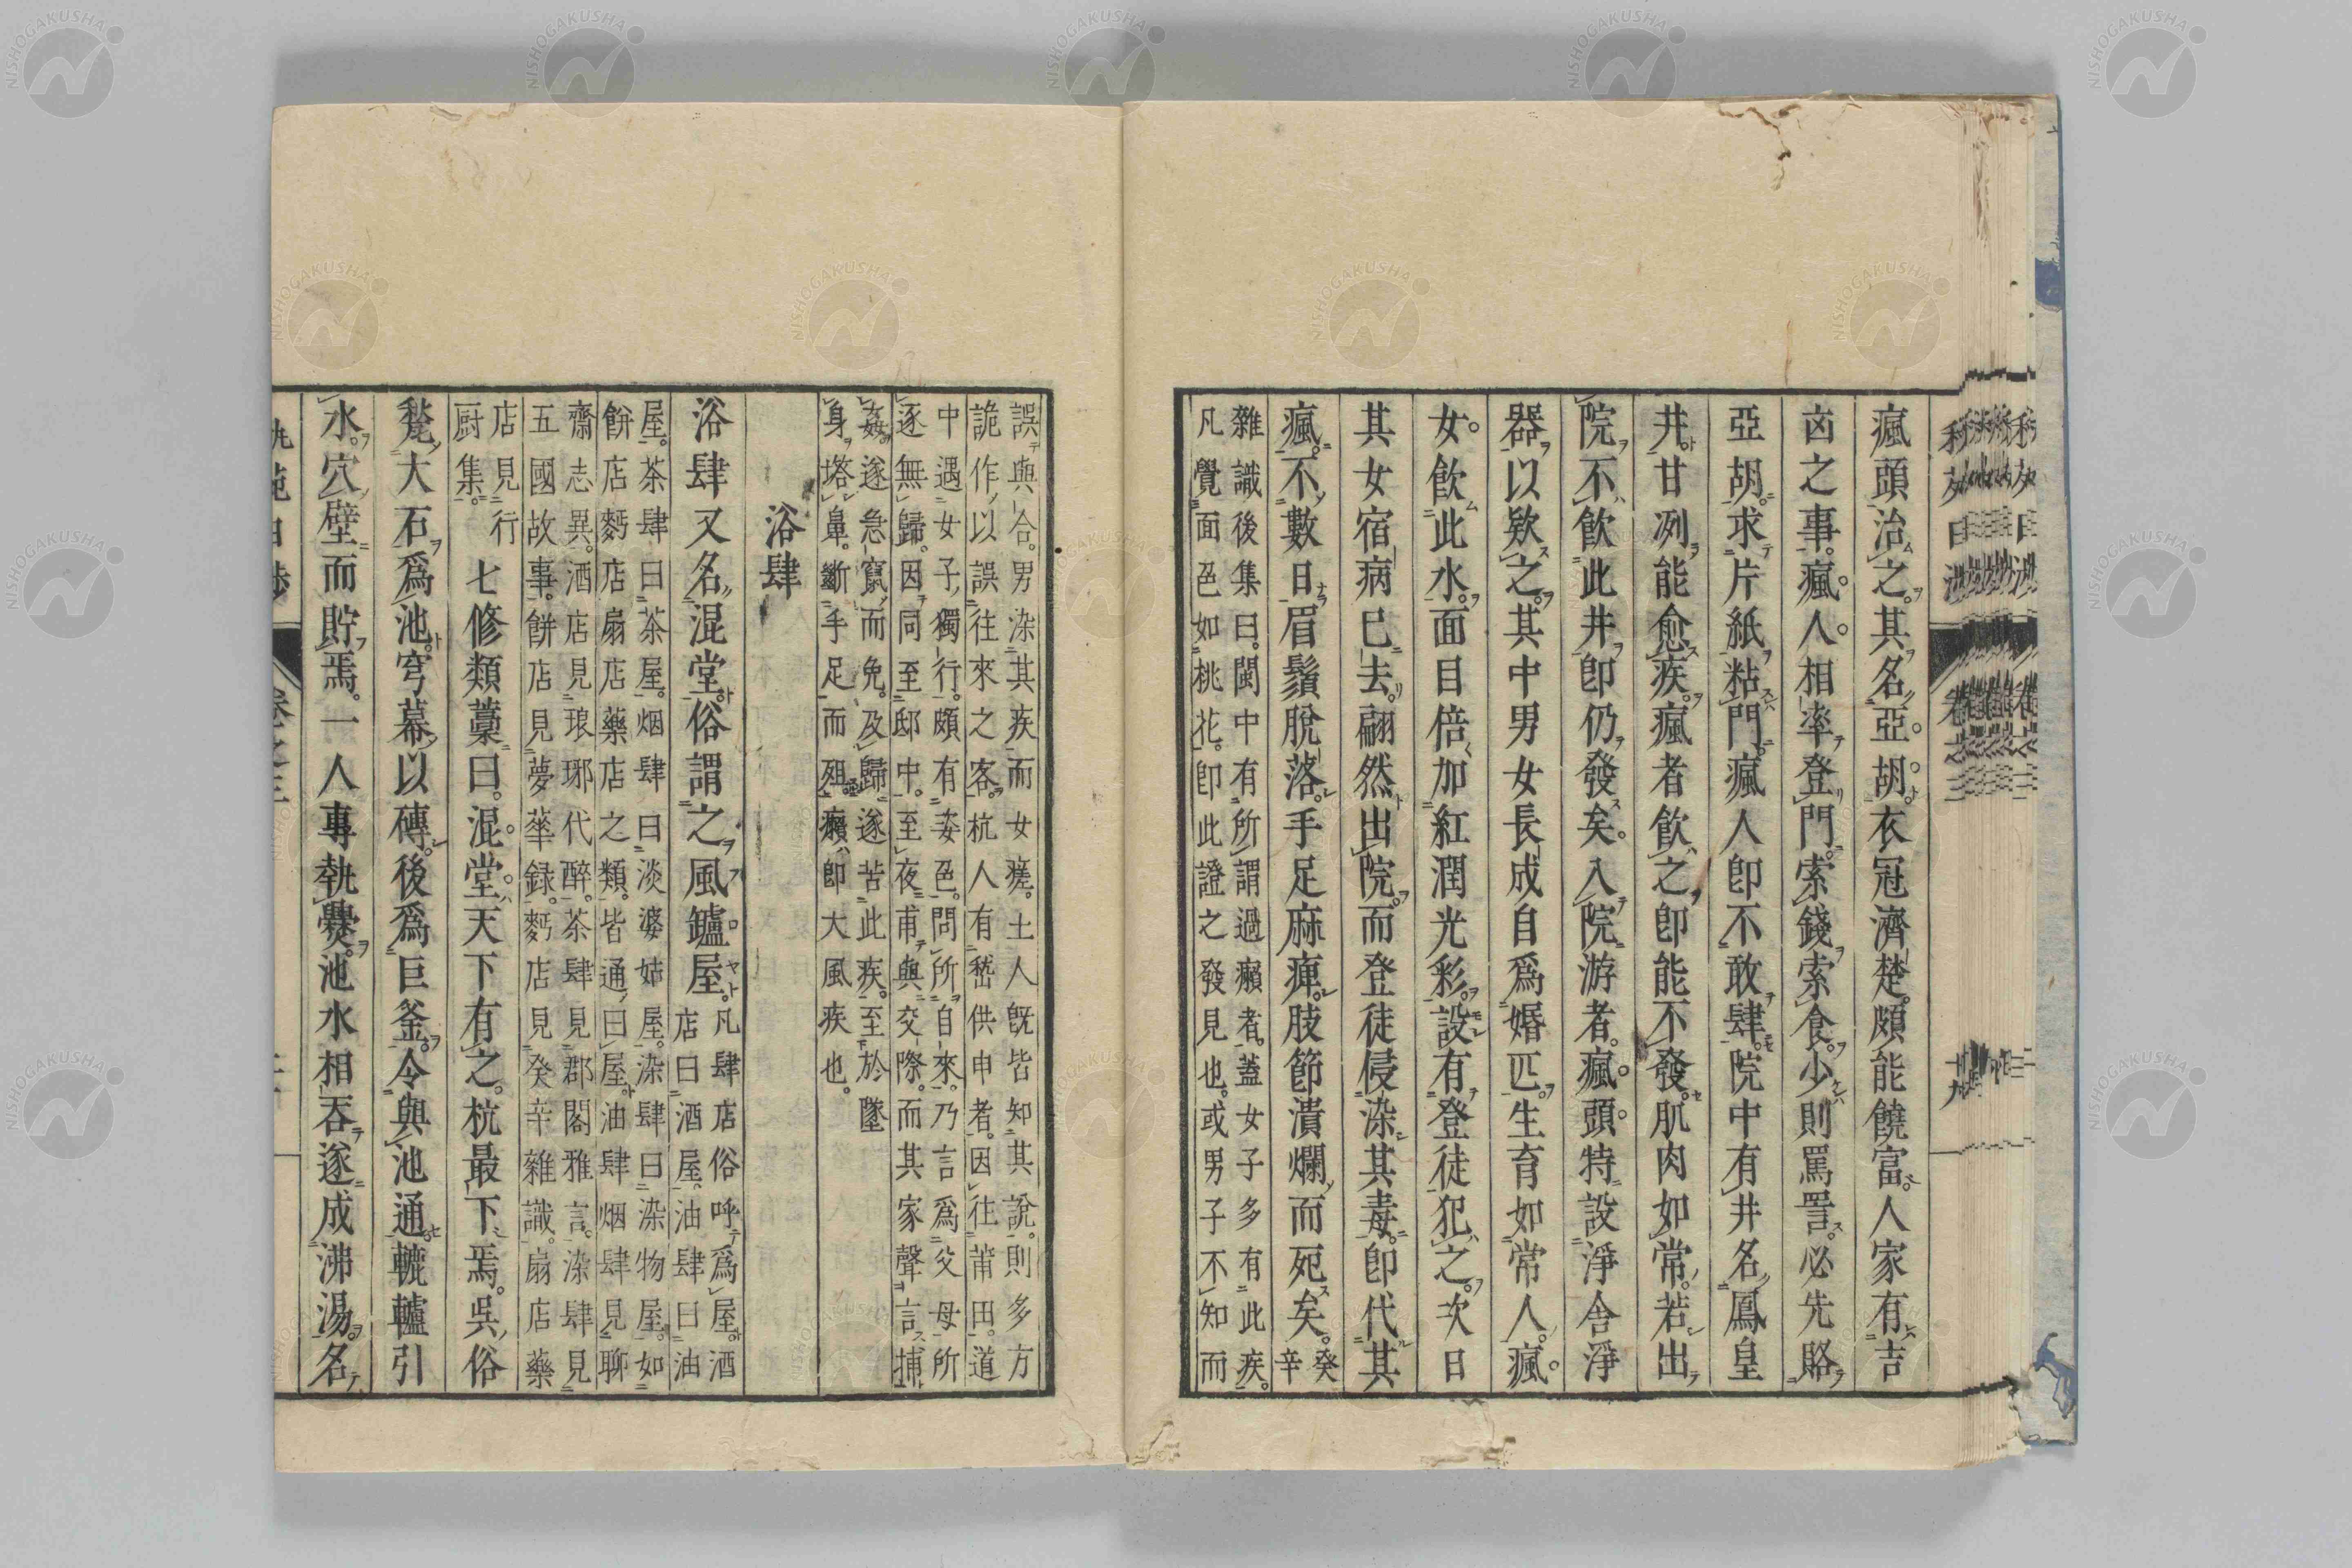 瘋頭治之其名亞胡衣冠濟楚頗能饒富人家有吉
凶之事瘋人相率登門索錢索食少則罵詈必先賂
亞胡求片紙粘門瘋人卽不敢肆院中有井名鳳皇
井甘冽能愈疾瘋者飮之卽能不發肌肉如常若出
院不飮此井卽仍發矣入院游者瘋頭特設淨舍淨
器以欵之其中男女長成自爲婚匹生育如常人瘋
女飮此水面目倍加紅潤光彩設有登徒犯之次日
其女宿病已去翩然出院而登徒侵染其毒卽代其
瘋不數日眉鬚脫落手足麻痺肢節潰爛而死矣癸辛
雜識後集曰閩中有所謂過癩者蓋女子多有此疾
凡覺面色如桃花卽此證之發見也或男子不知而
誤與合男染其疾而女瘥土人旣皆知其說則多方
詭作以誤往來之客杭人有嵇供申者因往莆田道
中遇女子獨行頗有姿色問所自來乃言爲父母所
逐無歸因同至邸中至夜甫與交際而其家聲言捕
姦遂急竄而免及歸遂苦此疾至於墜
身塔鼻斷手足而殂癩卽大風疾也
浴肆
浴肆又名混堂俗謂之風鑪屋凡肆店俗呼爲屋酒
店曰酒屋油肆曰油
屋茶肆曰茶屋烟肆曰淡婆姑屋染肆曰染物屋如
餅店麪店扇店藥店之類皆通曰屋油肆烟肆見聊
齋志異酒店見琅琊代醉茶肆見郡閣雅言染肆見
五國故事餅店見夢華録麪店見癸辛雜識扇店藥
店見行
厨集
七修類藁曰混堂天下有之杭最下焉吳俗
甃大石爲池穹幕以磚後爲巨釜令與池通轆轤引
水穴壁而貯焉一人專執爨池水相吞遂成沸湯名